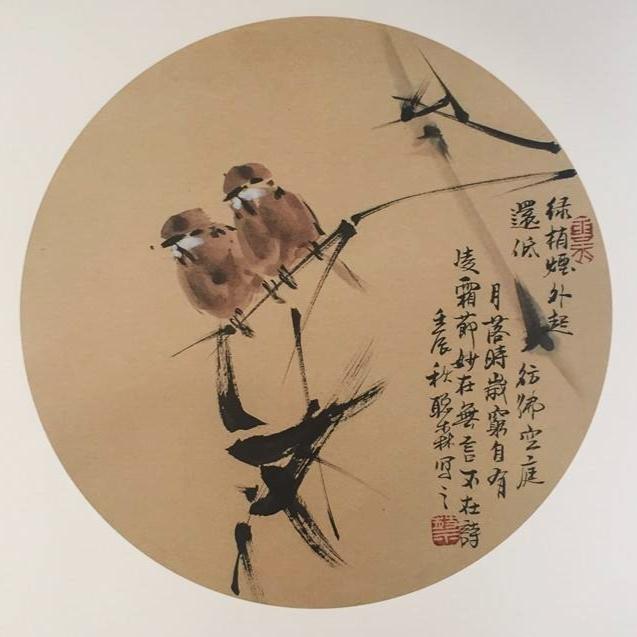 绿梢煙外起
還低　彷彿空庭
月落時歲窮自有
凌霜節妙在無言不在詩
壬辰秋聪森写之